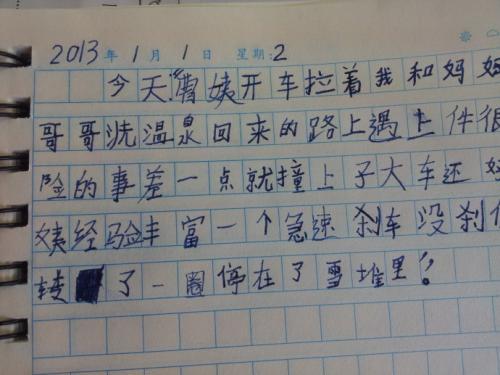 2013年1月1日 星期:2
今天曹姨开车拉着我和妈妈
哥哥洗温泉回来的路上遇上件很
险的事差一点就撞上了大车还好
姨经验丰富一个急速刹车没刹住
转了一圈停在了雪堆里!